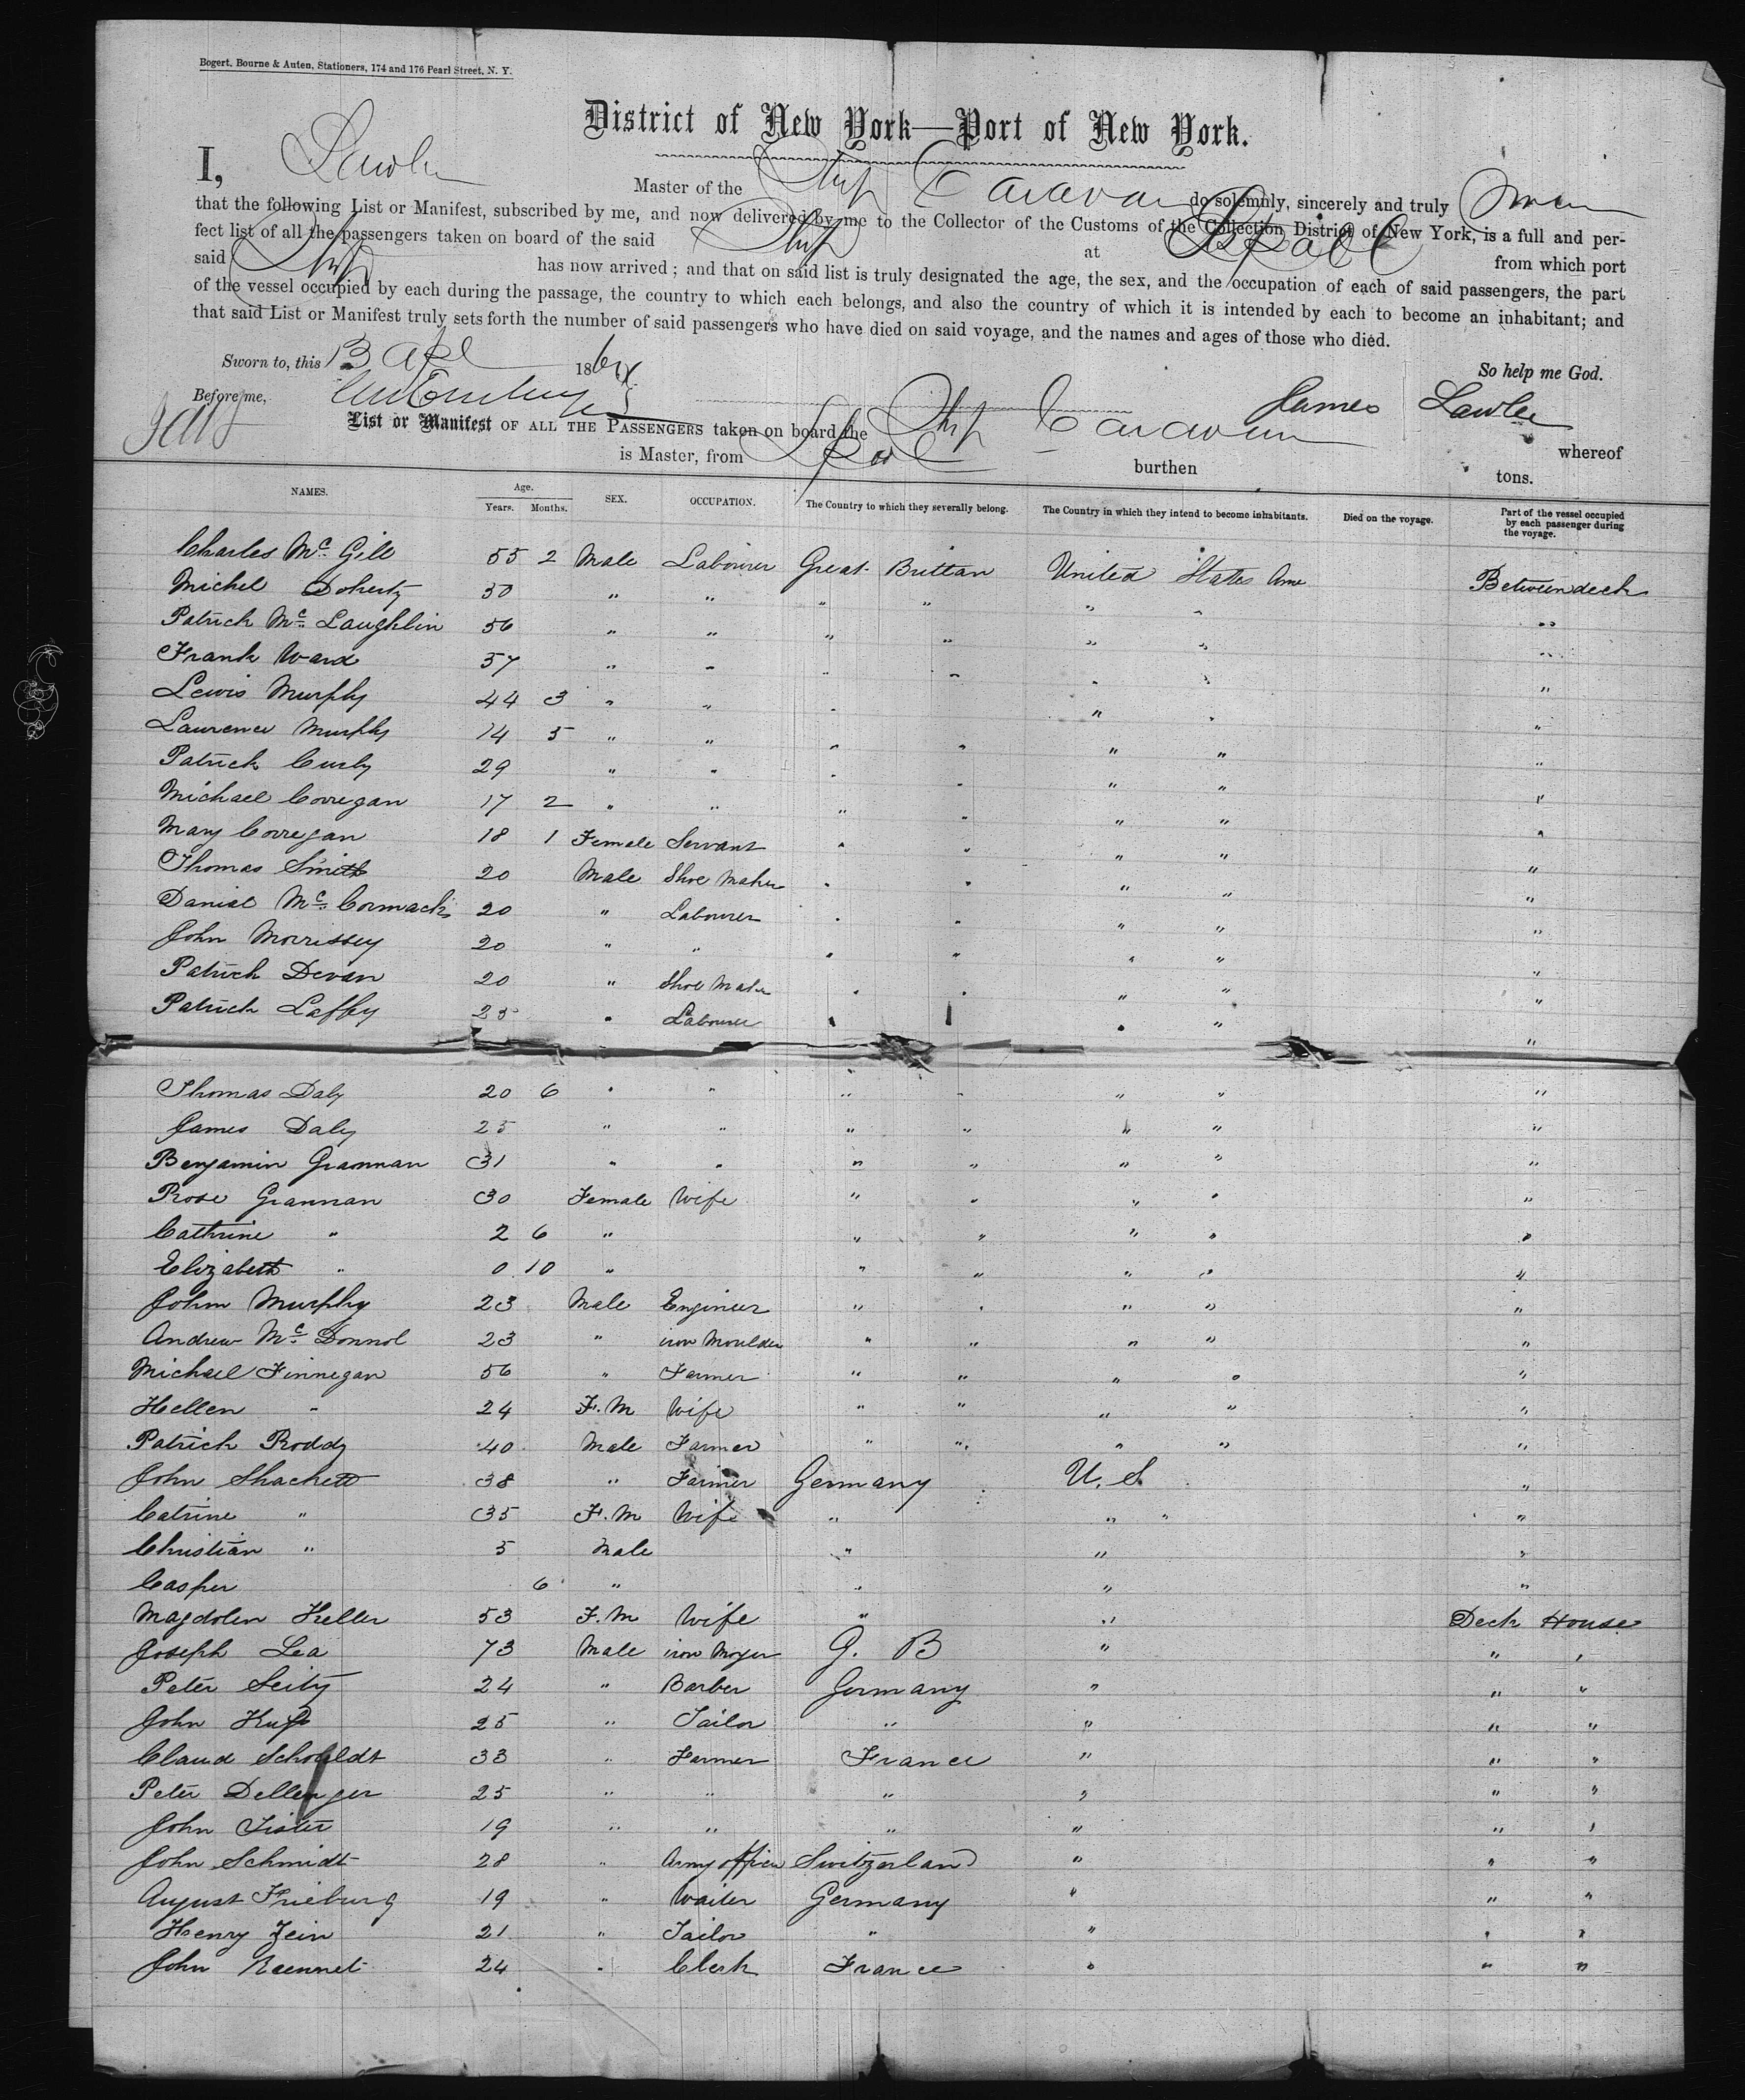 Bogert, Bourne & Auten, Stationers, 174 and 176 Pearl Street, N. Y.
District of New York—Port of New York.
I, Lawler Master of the Ship Caravan do solemnly, sincerely and truly swear
that the following List or Manifest, subscribed by me, and now delivered by me to the Collector of the Customs of the Collection District of New York, is a full and per-
fect list of all the passengers taken on board of the said Ship at Lpool from which port
said Ship has now arrived; and that on said list is truly designated the age, the sex, and the occupation of each of said passengers, the part
of the vessel occupied by each during the passage, the country to which each belongs, and also the country of which it is intended by each to become an inhabitant; and
that said List or Manifest truly sets forth the number of said passengers who have died on said voyage, and the names and ages of those who died.
Sworn to, this 13 Apl 186 So help me God.
Before me, James Lawler
List or Manifest OF ALL THE PASSENGERS taken on board the Ship Caravan whereof
is Master, from Lpool burthen tons.
NAMES. Age. Years. Months. SEX. OCCUPATION. The Country to which they severally belong. The Country in which they intend to become inhabitants. Died on the voyage. Part of the vessel occupied by each passenger during the voyage.
Charles Mc Gill 55 2 Male Labourer Great Brittan United States Ame Betweendeck
Michel Doherty 30 " " " " " " "
Patrick Mc Laughlin 56 " " " " " " "
Frank Ward 37 " " " " " " "
Lewis Murphy 44 3 " " " " " "
Laurence Murphy 14 5 " " " " " " "
Patrick Curly 29 " " " " " " "
Michael Corregan 17 2 " " " " " " "
Mary Corregan 18 1 Female Servant " " " " "
Thomas Smith 20 Male Shoe Maker " " " " "
Danial Mc Cormack 20 " Labourer " " " " "
John Morrissey 20 " " " " " " "
Patrick Devan 20 " Shoe Maker " " " " "
Patrick Laffey 23 " Labourer " " " " "
Thomas Daly 20 6 " " " " " " "
James Daly 25 " " " " " " "
Benjamin Grannan 31 " " " " " " "
Rose Grannan 30 Female Wife " " " " "
Cathrine " 2 6 " " " " " "
Elizabeth " 0 10 " " " " " "
John Murphy 23 Male Engineer " " " " "
Andrew Mc Donnol 23 " iron Moulder " " " " "
Michael Finnegan 56 " Farmer " " " " "
Hellen " 24 F. M Wife " " " " "
Patrick Roddy 40 Male Farmer " " " " "
John Shachett 38 " Farmer Germany U. S "
Catrine " 35 F. M Wife " " " "
Christian " 5 Male " " "
Casper 6 " " " "
Magdolen Heller 53 F. M Wife " " Deck House
Joseph Lea 73 Male iron G. B " " "
Peter Seity 24 " Barber Germany " " "
John 25 " Tailor " " " "
Claud Schouldt 33 " Farmer France " " "
Peter Dellenger 25 " " " " " "
John 19 " " " " " "
John Schmidt 28 " Army officer Switzerland " " "
August Frieburg 19 " Waiter Germany " " "
Henry Zein 21 " Tailor " " " "
John 24 " Clerk France " " "